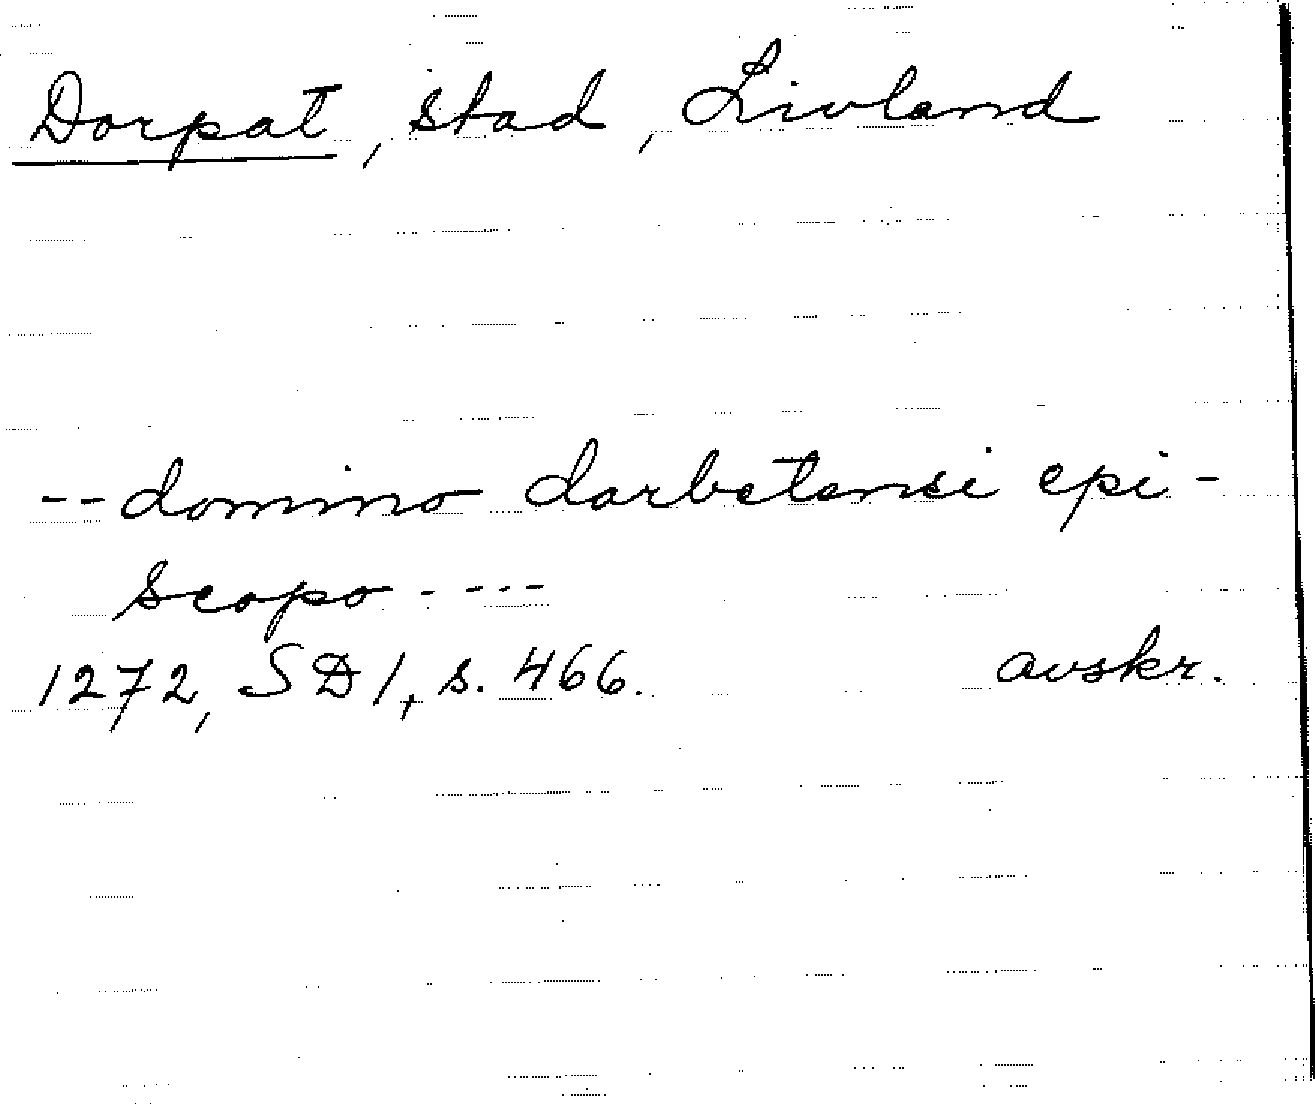 Dorpat, stad, Livland
-- domino darbetensi epi-
scopo ----
1272, SD 1, s. 466. avskr.